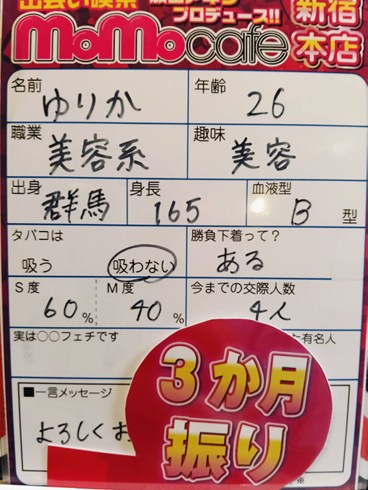 出会い喫茶
プロデュース!!
MoMocafe
新宿
本店
名前
ゆりか
年齢
26
職業
美容系
趣味
美容
出身
群馬
身長
165
血液型
B 型
タバコは
吸う 吸わない
勝負下着って?
ある
S度
60%
M度
40%
今までの交際人数
4人
実は○○フェチです
た有名人
■一言メッセージ
よろしくお
3か月
振り